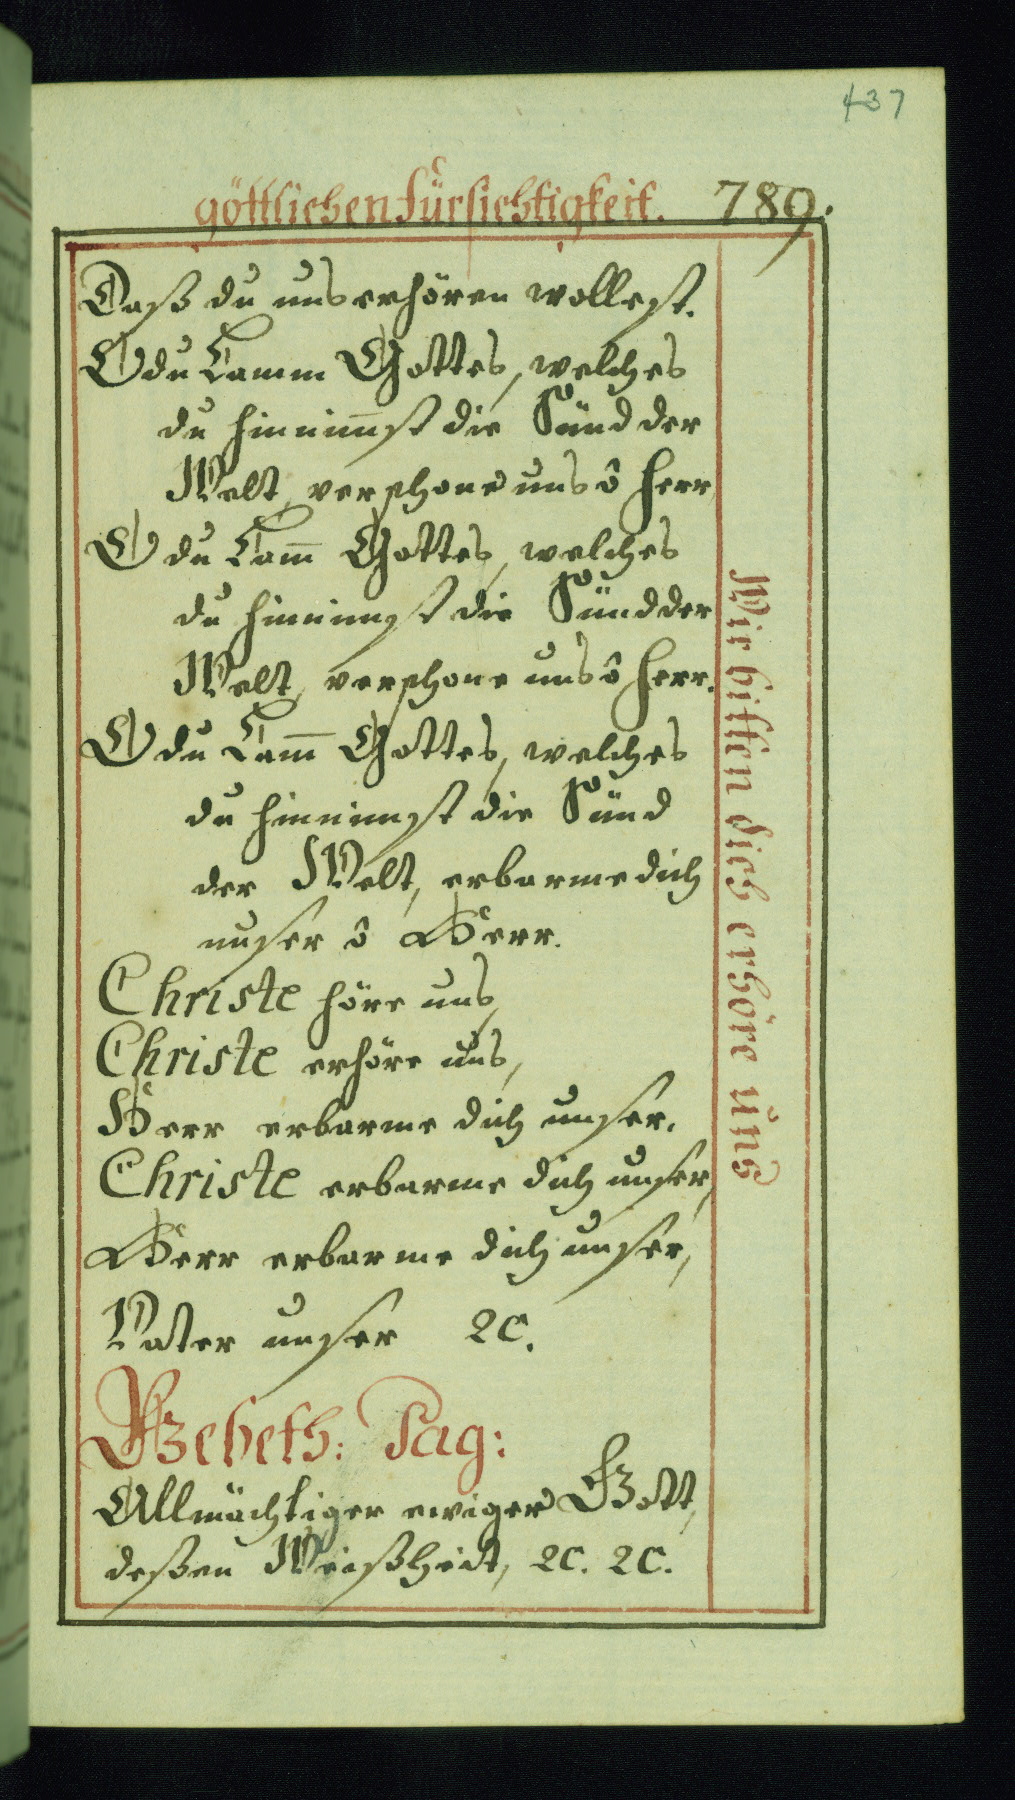 437
göttlichen fürsichtigkeit. 789.
Daß du uns erhören wollest.
O du Lamm Gottes, welches
du hinnim̄st die Sünd der
Welt, verschone uns ô Herr
O du Lam̄ Gottes, welches
du hinnimst die Sünd der
Welt, verschone uns ô Herr.
O du Lam̄ Gottes, welches
du hinnimst die Sünd
der Welt, erbarme dich
unser ô Herr.
Christe höre uns,
Christe erhöre uns,
Herr erbarme dich unser.
Christe erbarme dich unser,
Herr erbarme dich unser,
Vater unser ꝛc.
Gebeth: Tag:
Allmächtiger ewiger Gott,
deßen Weißheit, ꝛc. ꝛc.
Wir bitten dich erhöre uns